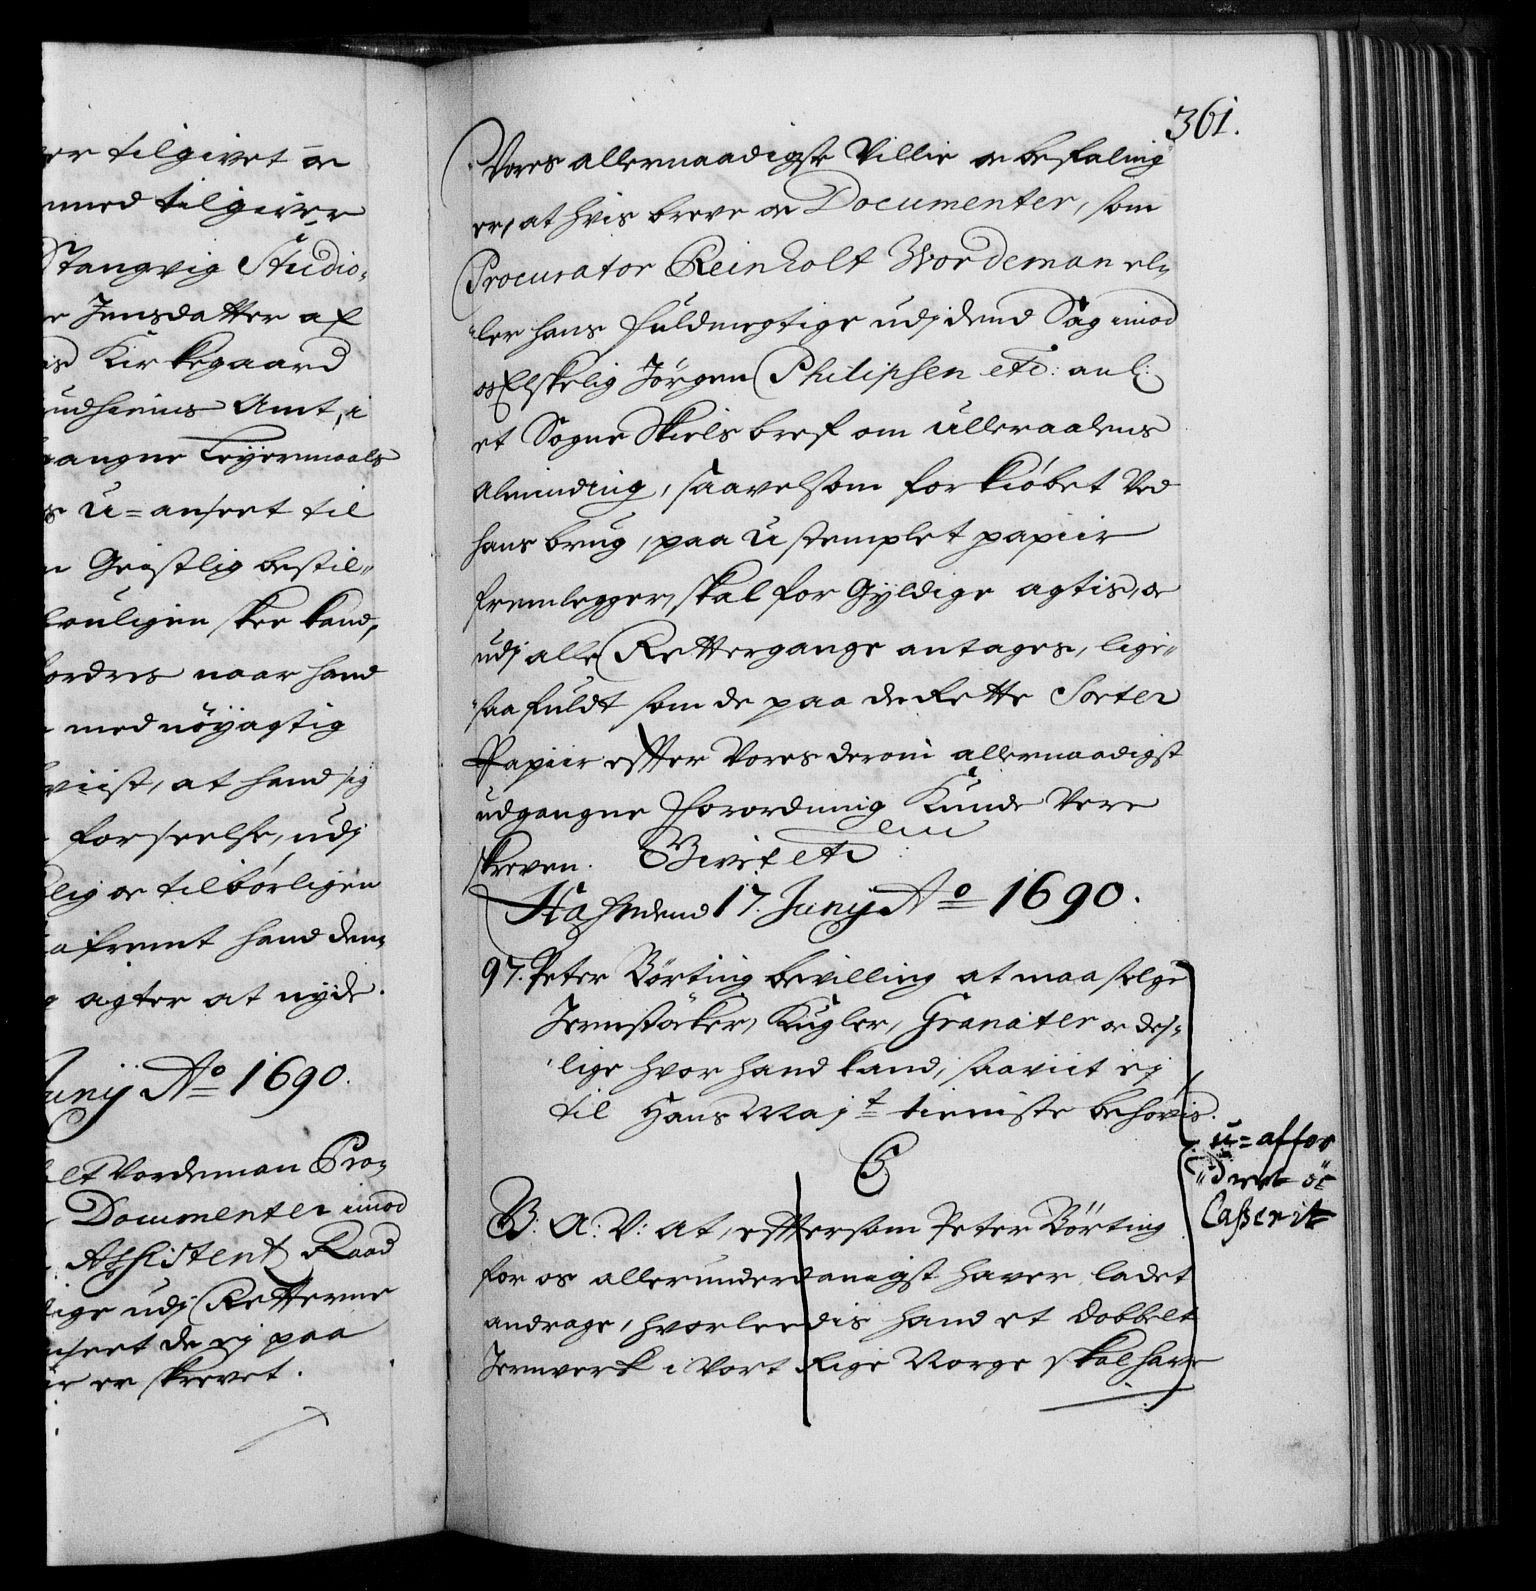 er tilgivet oc
med tilgiver
Stangvig Studio-
e Jensdatter af
Kirkegaard
udhiems Amt, i
gangne Leyermaals
u=anseet til
n Geistlig bestil-
ouligen skee kand,
fordres naar hand
med nöyagtig
viist, at hand sig
forseelse, udj
lig oc tilbørligen
afremt hand den-
agter at nyde.
Junij Ao 1690.
olt Vordeman Pro-
Documenter imod
Assistent Raad
dige udj Retterne
anseet de ej paa
er skrevet.
361.
Vores allernaadigste Villie oc befaling
er, at hvis breve oc Documenter, som
Procurator Reinholt Wordeman el-
ler hans fuldmegtige udj dend Sag imod
os Elskelig Jörgen Philipsen etc: anl:
et Sogne Skiels bref om Ulleraalens
Alminding, saavelsom forkiöbet Ved
hans brug, paa Ustemplet papiir
fremlegger, skal for Gyldige agtis, oc
udj alle Rettergange antages, lige-
saa fuldt som de paa de Rette Sorter
Papiir effter Vores derom allernaadigst
udgangne Forordning Kunde Vere
skreven. Givet etc
Hafn dend 17. Junij Ao 1690.
97. Peter Börting bevilling at maa selge
Jernstöcker, Kugler, Granater oc des-
lige hvor hand kand, saaviit ej
til Hans Majt tieniste behövis.
C5
B: A: V: at, effttersom Peter Börting
for os allerunderdanigst haver ladet
andrage, hvorleedis hand et dobbelt
Jernverk i Vort Rige Norge skal have
u=affor
dret oc
Casserit